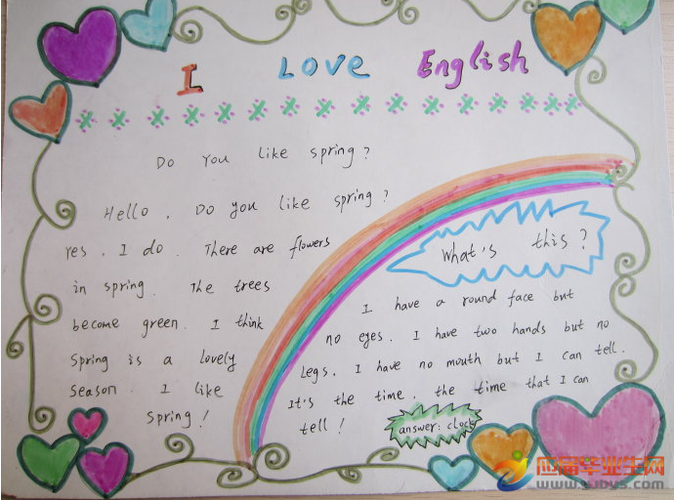 I Love English
Do you like spring?
Hello. Do you like spring?
Yes. I do. There are flowers
in spring. The trees
become green. I think
Spring is a lovely
Season. I like
Spring!
What's this?
I have a round face but
no eyes. I have two hands but no
Legs. I have no mouth but I can tell.
It's the time. the time that I can
tell!
answer: clock
应届毕业生网